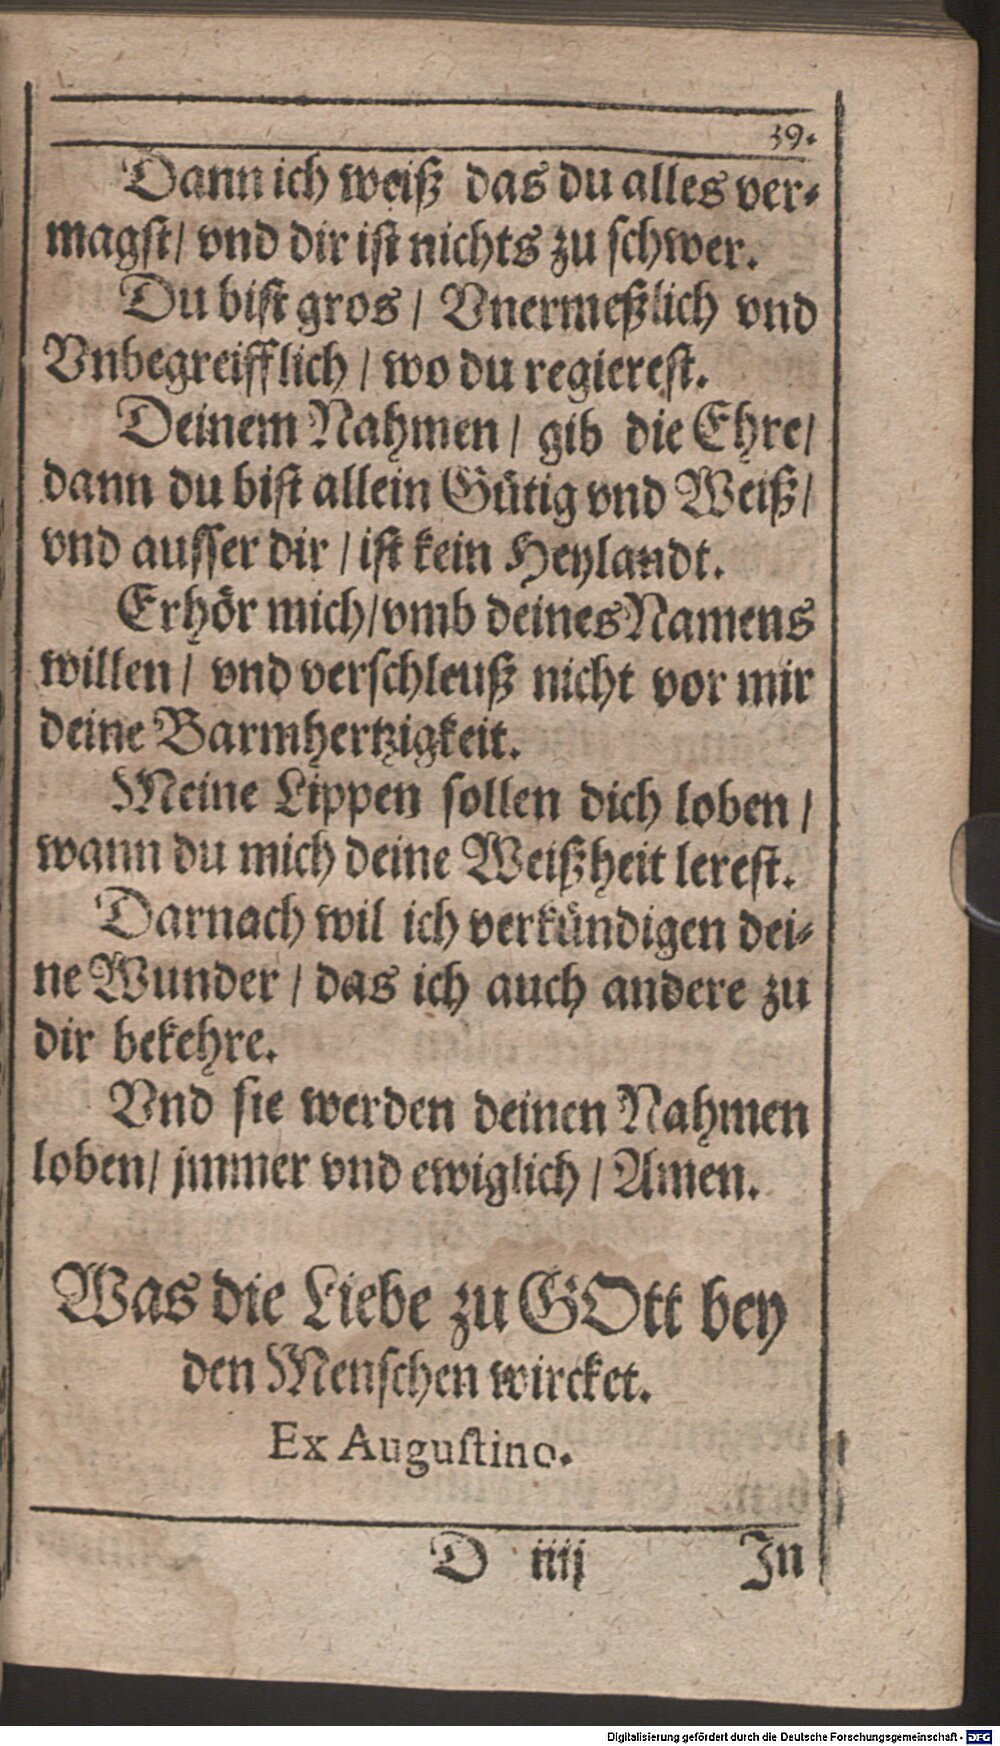 39.
Dann ich weiß das du alles ver⸗
magſt/ vnd dir iſt nichts zu ſchwer.
Du biſt gros / Vnermeßlich vnd
Vnbegreifflich / wo du regiereſt.
Deinem Nahmen / gib die Ehre/
dann du biſt allein Gütig vnd Weiß/
vnd auſſer dir / iſt kein Heylandt.
Erhör mich/vmb deines Namens
willen / vnd verſchleuß nicht vor mir
deine Barmhertzigkeit.
Meine Lippen ſollen dich loben /
wann du mich deine Weißheit lereſt.
Darnach wil ich verkündigen dei⸗
ne Wunder / das ich auch andere zu
dir bekehre.
Vnd ſie werden deinen Nahmen
loben/ jmmer vnd ewiglich / Amen.
Was die Liebe zu GOtt bey
den Menſchen wircket.
Ex Auguſtino.
D iiij In
Digitalisierung gefördert durch die Deutsche Forschungsgemeinschaft - DFG